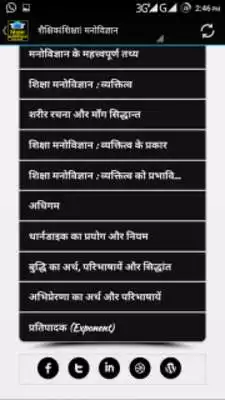 3G G 2:46 PM
शैक्षिक/शिक्षा मनोविज्ञान
मनोविज्ञान के महत्त्वपूर्ण तथ्य
शिक्षा मनोविज्ञान : व्यक्तित्व
शरीर रचना और माँग सिद्धान्त
शिक्षा मनोविज्ञान : व्यक्तित्व के प्रकार
शिक्षा मनोविज्ञान : व्यक्तित्व को प्रभावि...
अधिगम
थार्नडाइक का प्रयोग और नियम
बुद्धि का अर्थ, परिभाषायें और सिद्धांत
अभिप्रेरणा का अर्थ और परिभाषायें
प्रतिपादक (Exponent)